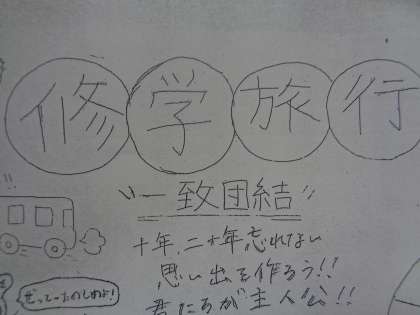 修学旅行
"一致団結"
十年、二十年忘れない
思い出を作ろう!!
君たちが主人公!!
ぜってーたのしめよ!